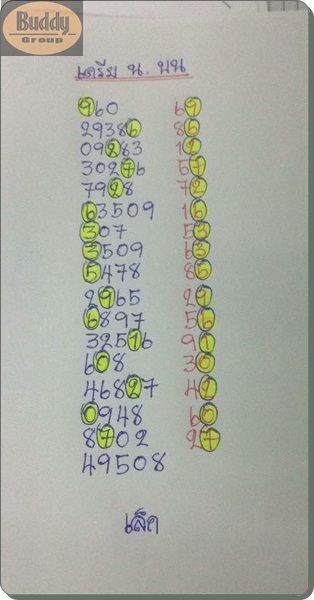 Buddy
Group
เตรีย น. บน
960 69
29386 86
09283 12
30276 57
7928 72
63509 16
307 53
3509 63
5478 85
2965 29
6897 56
32516 91
608 30
46827 42
0948 60
8702 27
49508
เล็ค